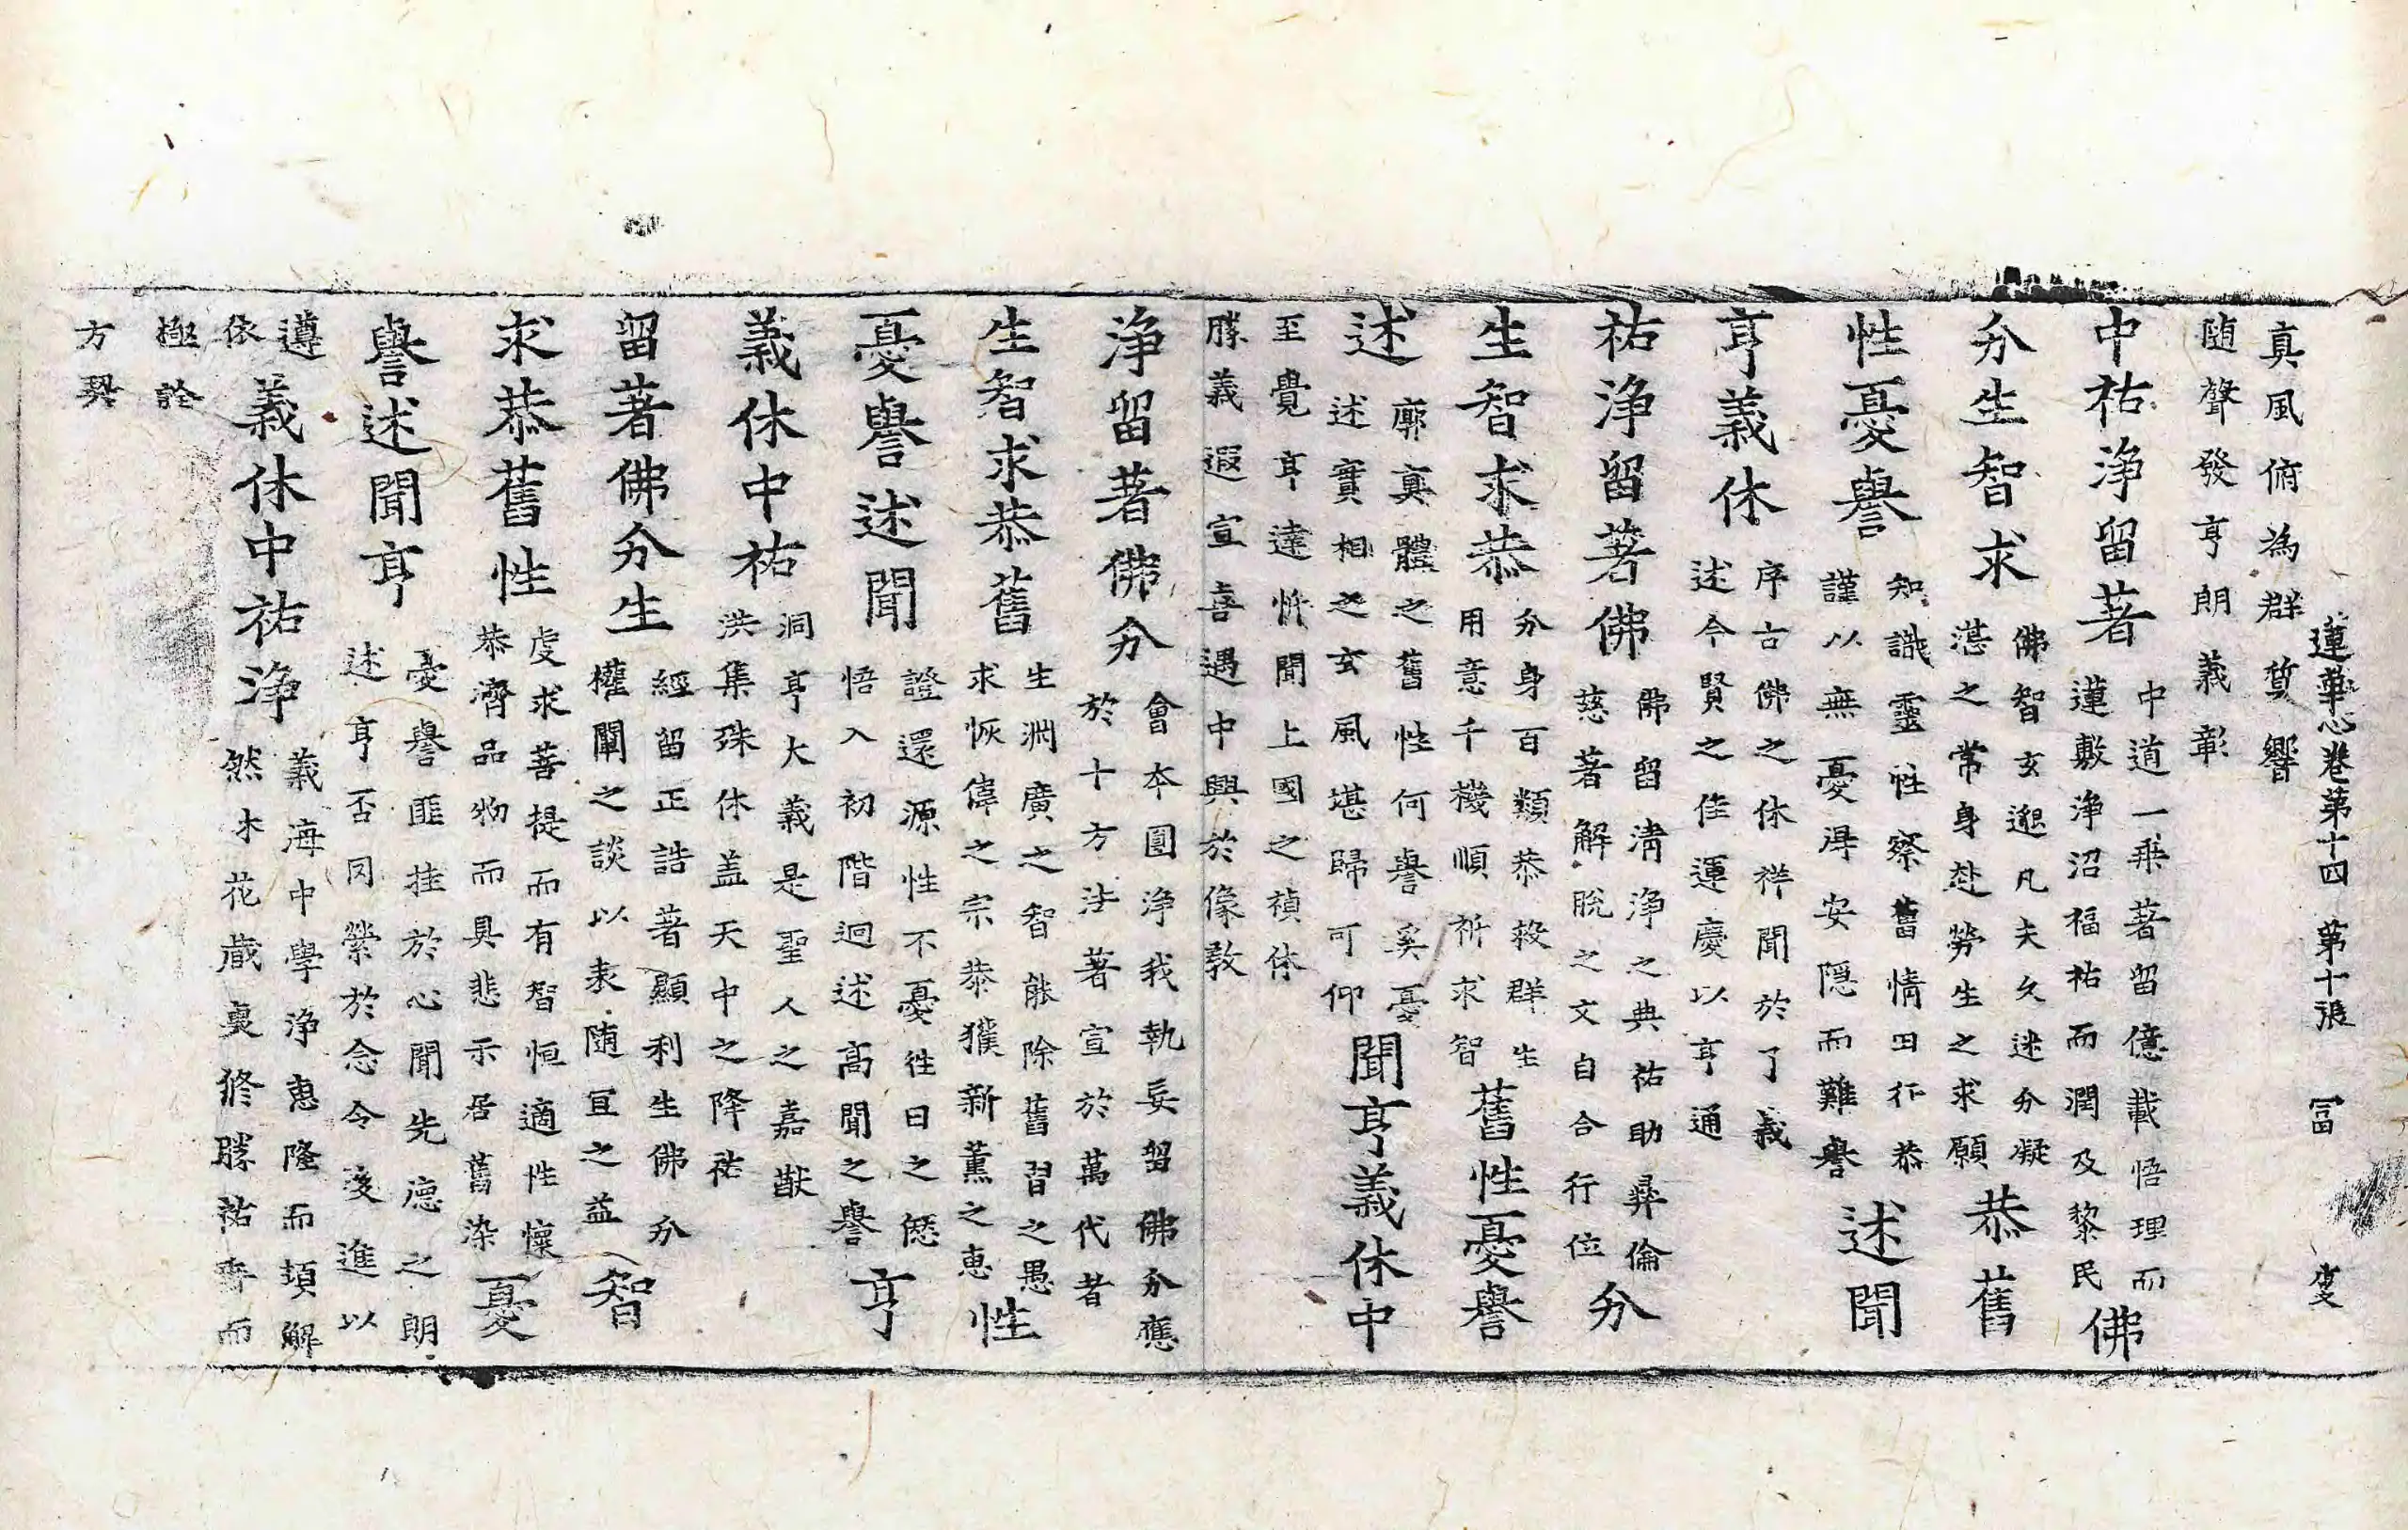 蓮華心卷第十四 第十張 冨
真風俯為群萲響
随聲發亨朗義彰
中祐浄留著
中道一乘著留億載悟理而
蓮敷浄沼福祐而潤及黎民
佛
分生智求
佛智玄邈凡夫久迷分凝
湛之常身赴勞生之求願
恭舊
性憂譽
知識靈性察舊情田行恭
謹以無憂淂安隠而難譽
述聞
亨義休
序古佛之休祥聞於了義
述今賢之佳運慶以亨通
祐浄留著佛
佛留清浄之典祐助彛倫
慈著解脫之文自合行位
分
生智求恭
分身百類恭救群生
用意千機順祈求智
舊性憂譽
述
廓真體之舊性何譽奚憂
述實相之玄風堪歸可仰
聞亨義休中
至覺亨達忻聞上國之禎休
勝義遐宣喜遇中興於像教
浄留著佛分
會本圓浄我執妄留佛分應
於十方法著宣於萬代者
生智求恭舊
生渊廣之智能除舊習之愚
求恢偉之宗恭獲新薫之恵
性
憂譽述聞
證還源性不憂徃日之愆
悟入初階迥述高聞之譽
亨
義休中祐
洞亨大義是聖人之嘉猷
洪集殊休盖天中之降祐
留著佛分生
經留正誥著顯利生佛分
權闡之談以表随冝之益
智
求恭舊性
虔求菩提而有智恒適性懷
恭濟品物而具悲示居舊染
憂
譽述聞亨
憂譽匪挂於心聞先德之朗
述亨否罔縈於念令後進以
遵
依
義休中祐浄
義海中學浄恵隆而頓解
然木花歳裏修勝祐齊而
極詮
方興